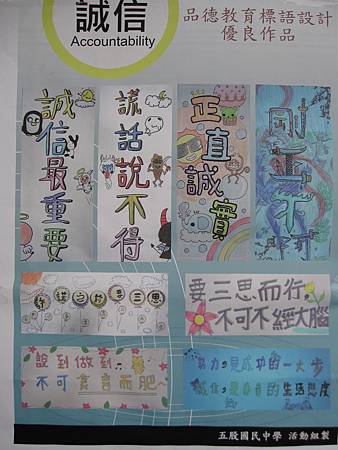 誠信
Accountability
品德教育標語設計
優良作品
誠信最重要
謊話說不得
正直誠實
剛正不
許諾之前三思
要三思而行,
不可不經大腦
說到做到
不可食言而肥
努力,是成功的一大步
誠信,是 的生活態度
五股國民中學 活動組製